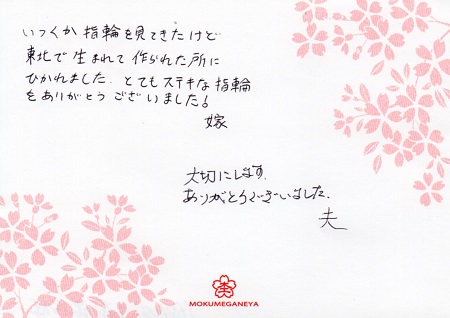 いつくか指輪を見てきたけど
東北で生まれて作られた所に
ひかれました。とてもステキな指輪
をありがとうございました!
嫁
大切にします。
ありがとうございました。
夫
MOKUMEGANEYA